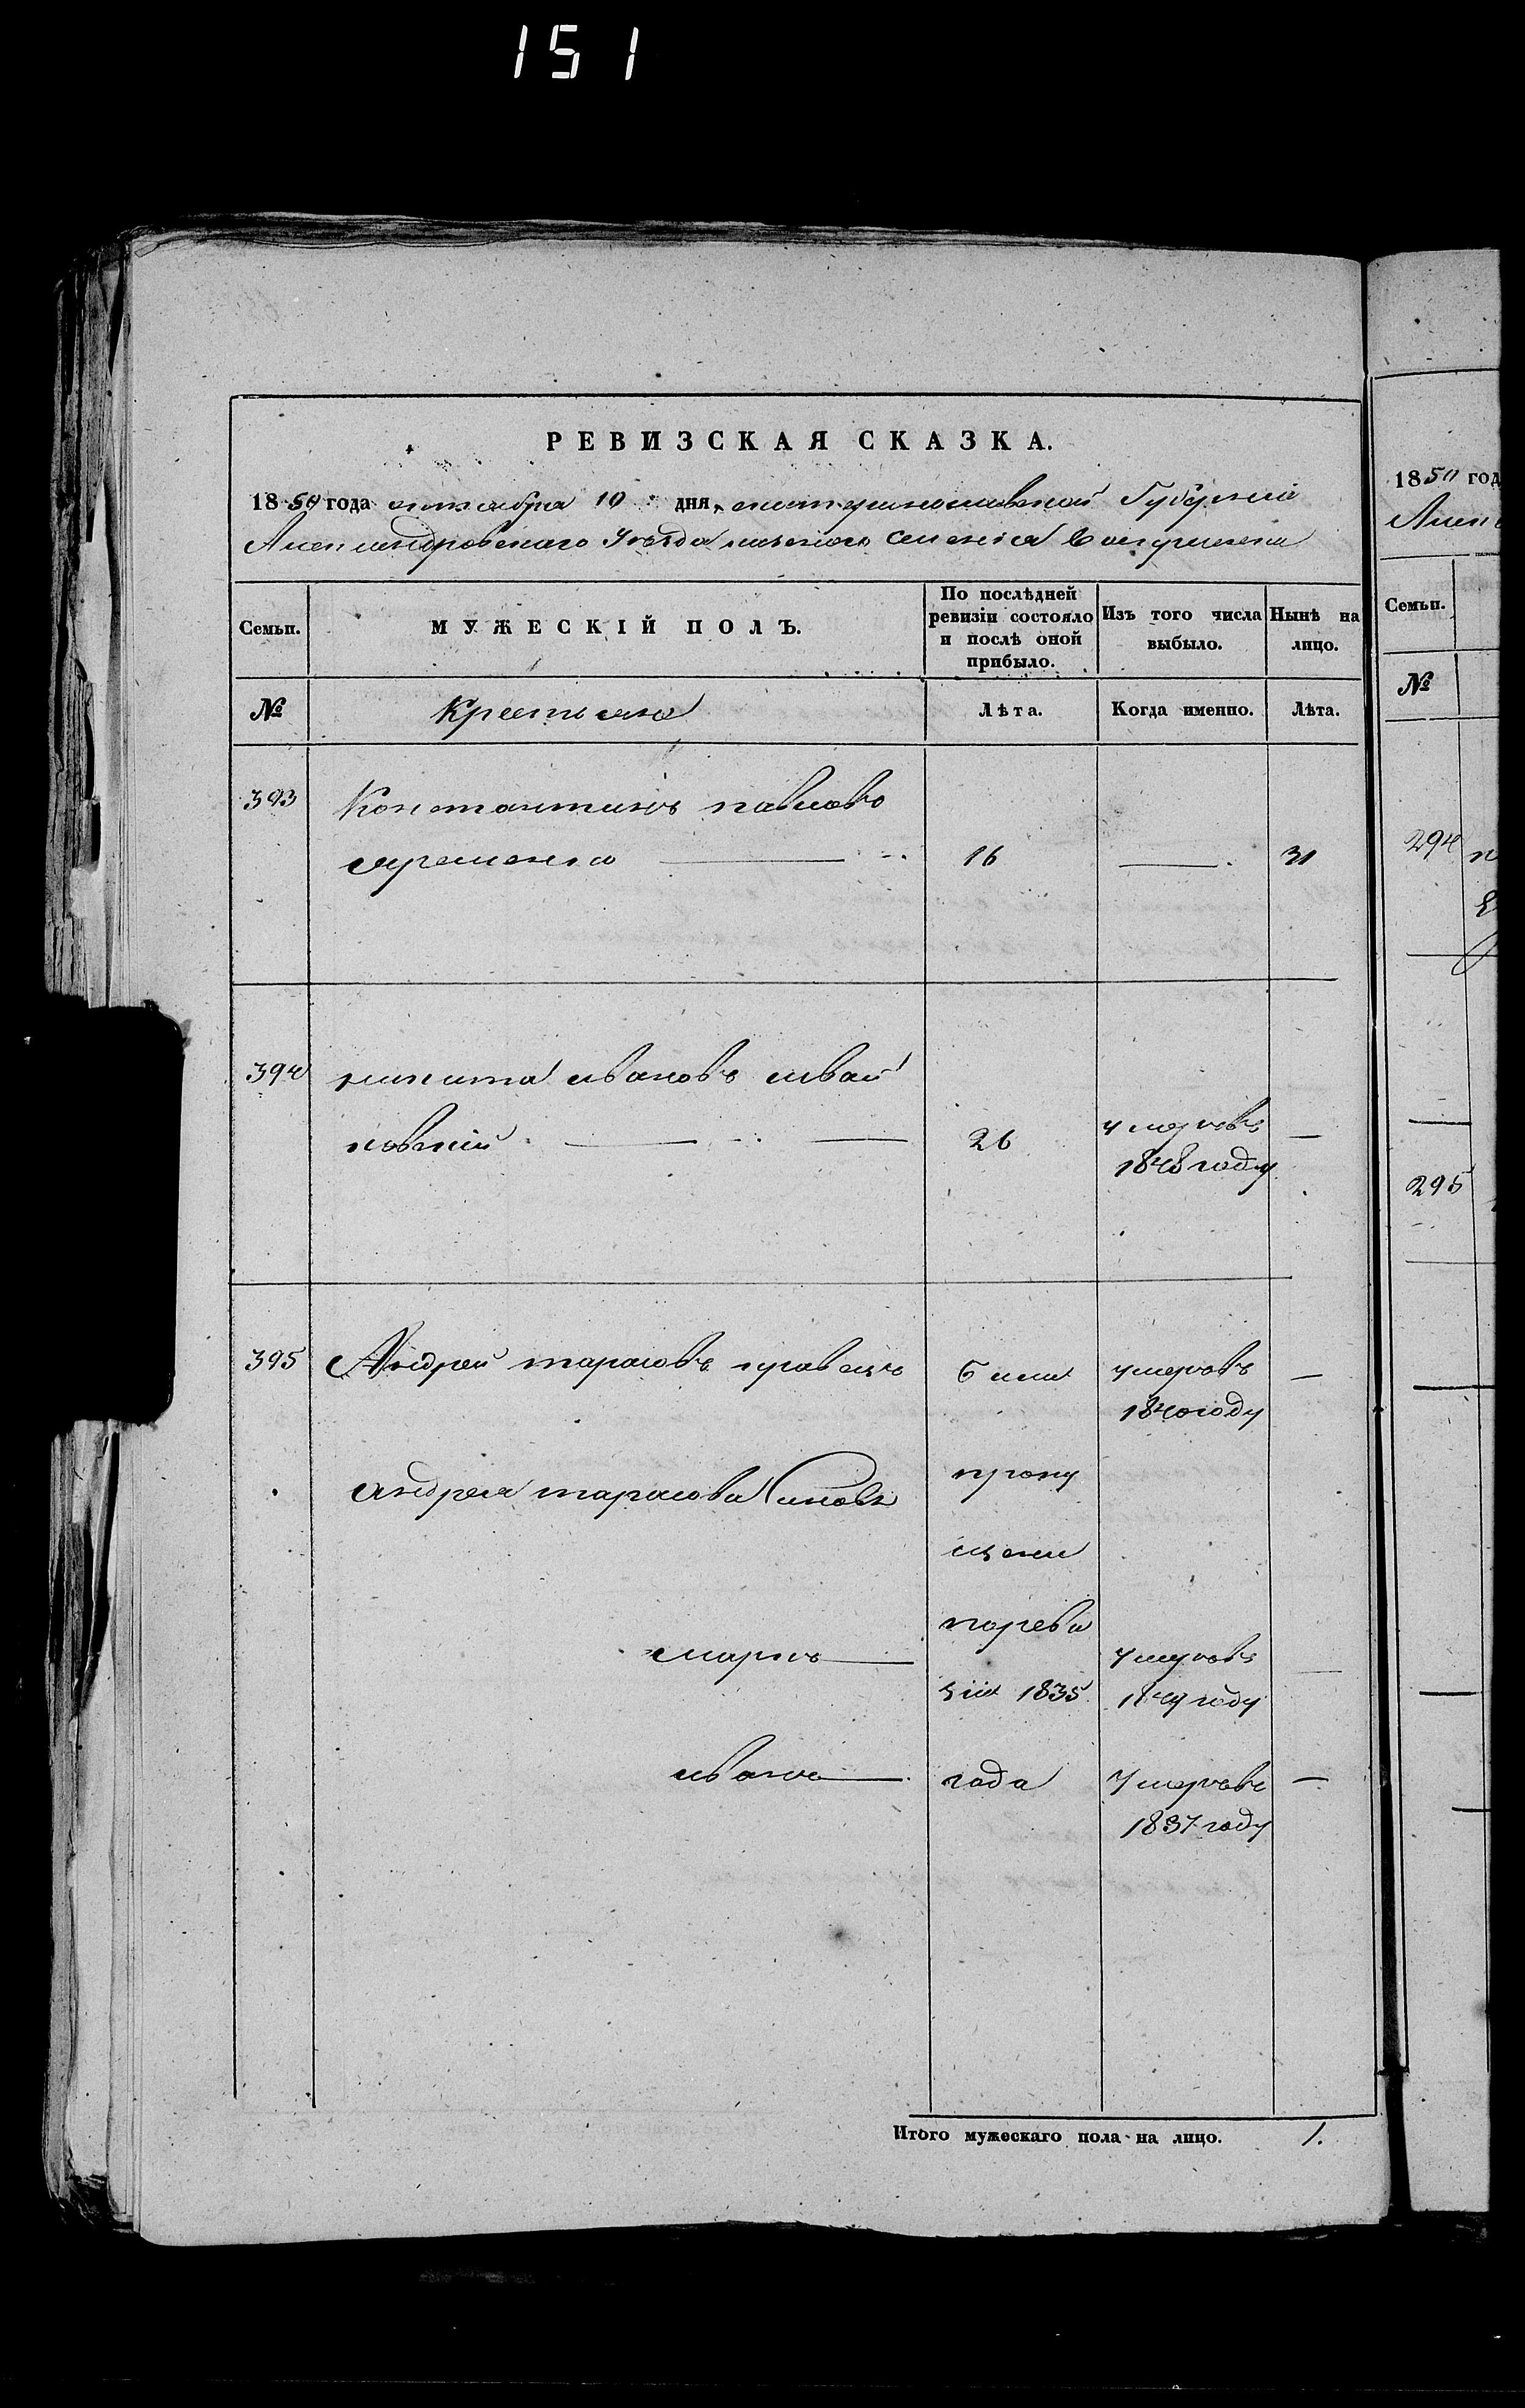 151
РЕВИЗСКАЯ СКАЗКА.
1850 года октября 10 дня, екатеринославской Губерніи
Александровскаго Уезда казенного селенія
Семьи.
МУЖЕСКІЙ ПОЛЪ.
По послѣдней ревизіи состояло и послѣ оной прибыло.
Изъ того числа выбыло.
Нынѣ на лицо.
№
Крестьяне
Лѣта.
Когда именно.
Лѣта.
393
Константинъ павловъ
яременко
16
31
394
никита ивановъ швай
ковскій
26
умеръ въ
1848 году
395
Андрей тарасовъ кравецъ
умеръ въ
1840 году
Андрея тарасова Сыновья
пропу
щены
марко
пореви
зіи 1835
умеръ въ
1849 году
иванъ
года
умеръ въ
1837 году
Итого мужескаго пола на лицо. 1.
1850 год
Семьи.
№
294
295